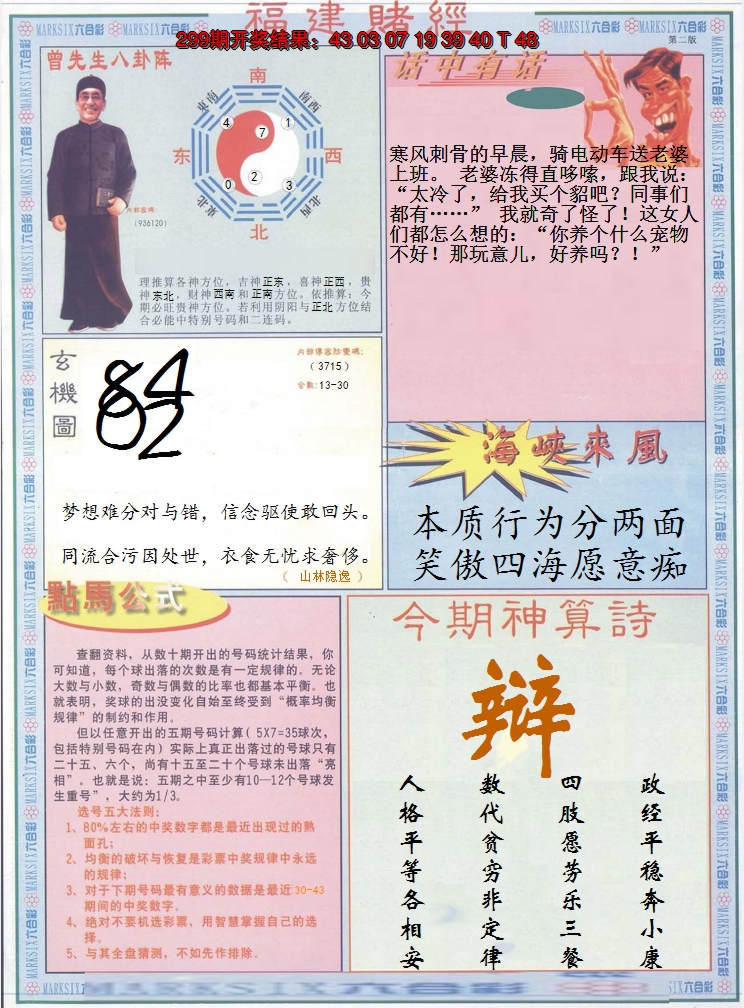 福建賭經
MARKSIX六合彩 MARKSIX六合彩 MARKSIX六合彩 MARKSIX六合彩
299期开奖结果：43 03 07 19 39 40 T 48
第二版
曾先生八卦阵
南
东南
南西
4
7
1
东
西
0
2
3
东北
北西
北
内部密碼：
（936120）
理推算各神方位，吉神正东，喜神正西，贵
神东北，财神西南和正南方位。依推算：今
期必旺贵神方位。若利用阴阳与正北方位结
合必能中特别号码和二连码。
话中有话
寒风刺骨的早晨，骑电动车送老婆
上班。 老婆冻得直哆嗦，跟我说：
“太冷了，给我买个貂吧？同事们
都有……” 我就奇了怪了！这女人
们都怎么想的：“你养个什么宠物
不好！那玩意儿，好养吗？！”
玄機圖
84
02
（3715）
合数:13-30
梦想难分对与错，信念驱使敢回头。
同流合污因处世，衣食无忧求奢侈。
（ 山林隐逸 ）
海峽來風
本质行为分两面
笑傲四海愿意痴
點馬公式
查翻资料，从数十期开出的号码统计结果，你
可知道，每个球出落的次数是有一定规律的。无论
大数与小数，奇数与偶数的比率也都基本平衡。也
就表明，奖球的出没变化自始至终受到“概率均衡
规律”的制约和作用。
但以任意开出的五期号码计算( 5X7=35球次，
包括特别号码在内) 实际上真正出落过的号球只有
二十五、六个，尚有十五至二十个号球未出落“亮
相”。也就是说：五期之中至少有10—12个号球发
生重号”，大约为1/3。
选号五大法则：
1、80%左右的中奖数字都是最近出现过的熟
面孔；
2、均衡的破坏与恢复是彩票中奖规律中永远
的规律；
3、对于下期号码最有意义的数据是最近 30-43
期间的中奖数字。
4、绝对不要机选彩票，用智慧掌握自己的选
择。
5、与其全盘猜测，不如先作排除。
今期神算詩
辩
人格平等各相安
数代贫穷非定律
四肢愿劳乐三餐
政经平稳奔小康